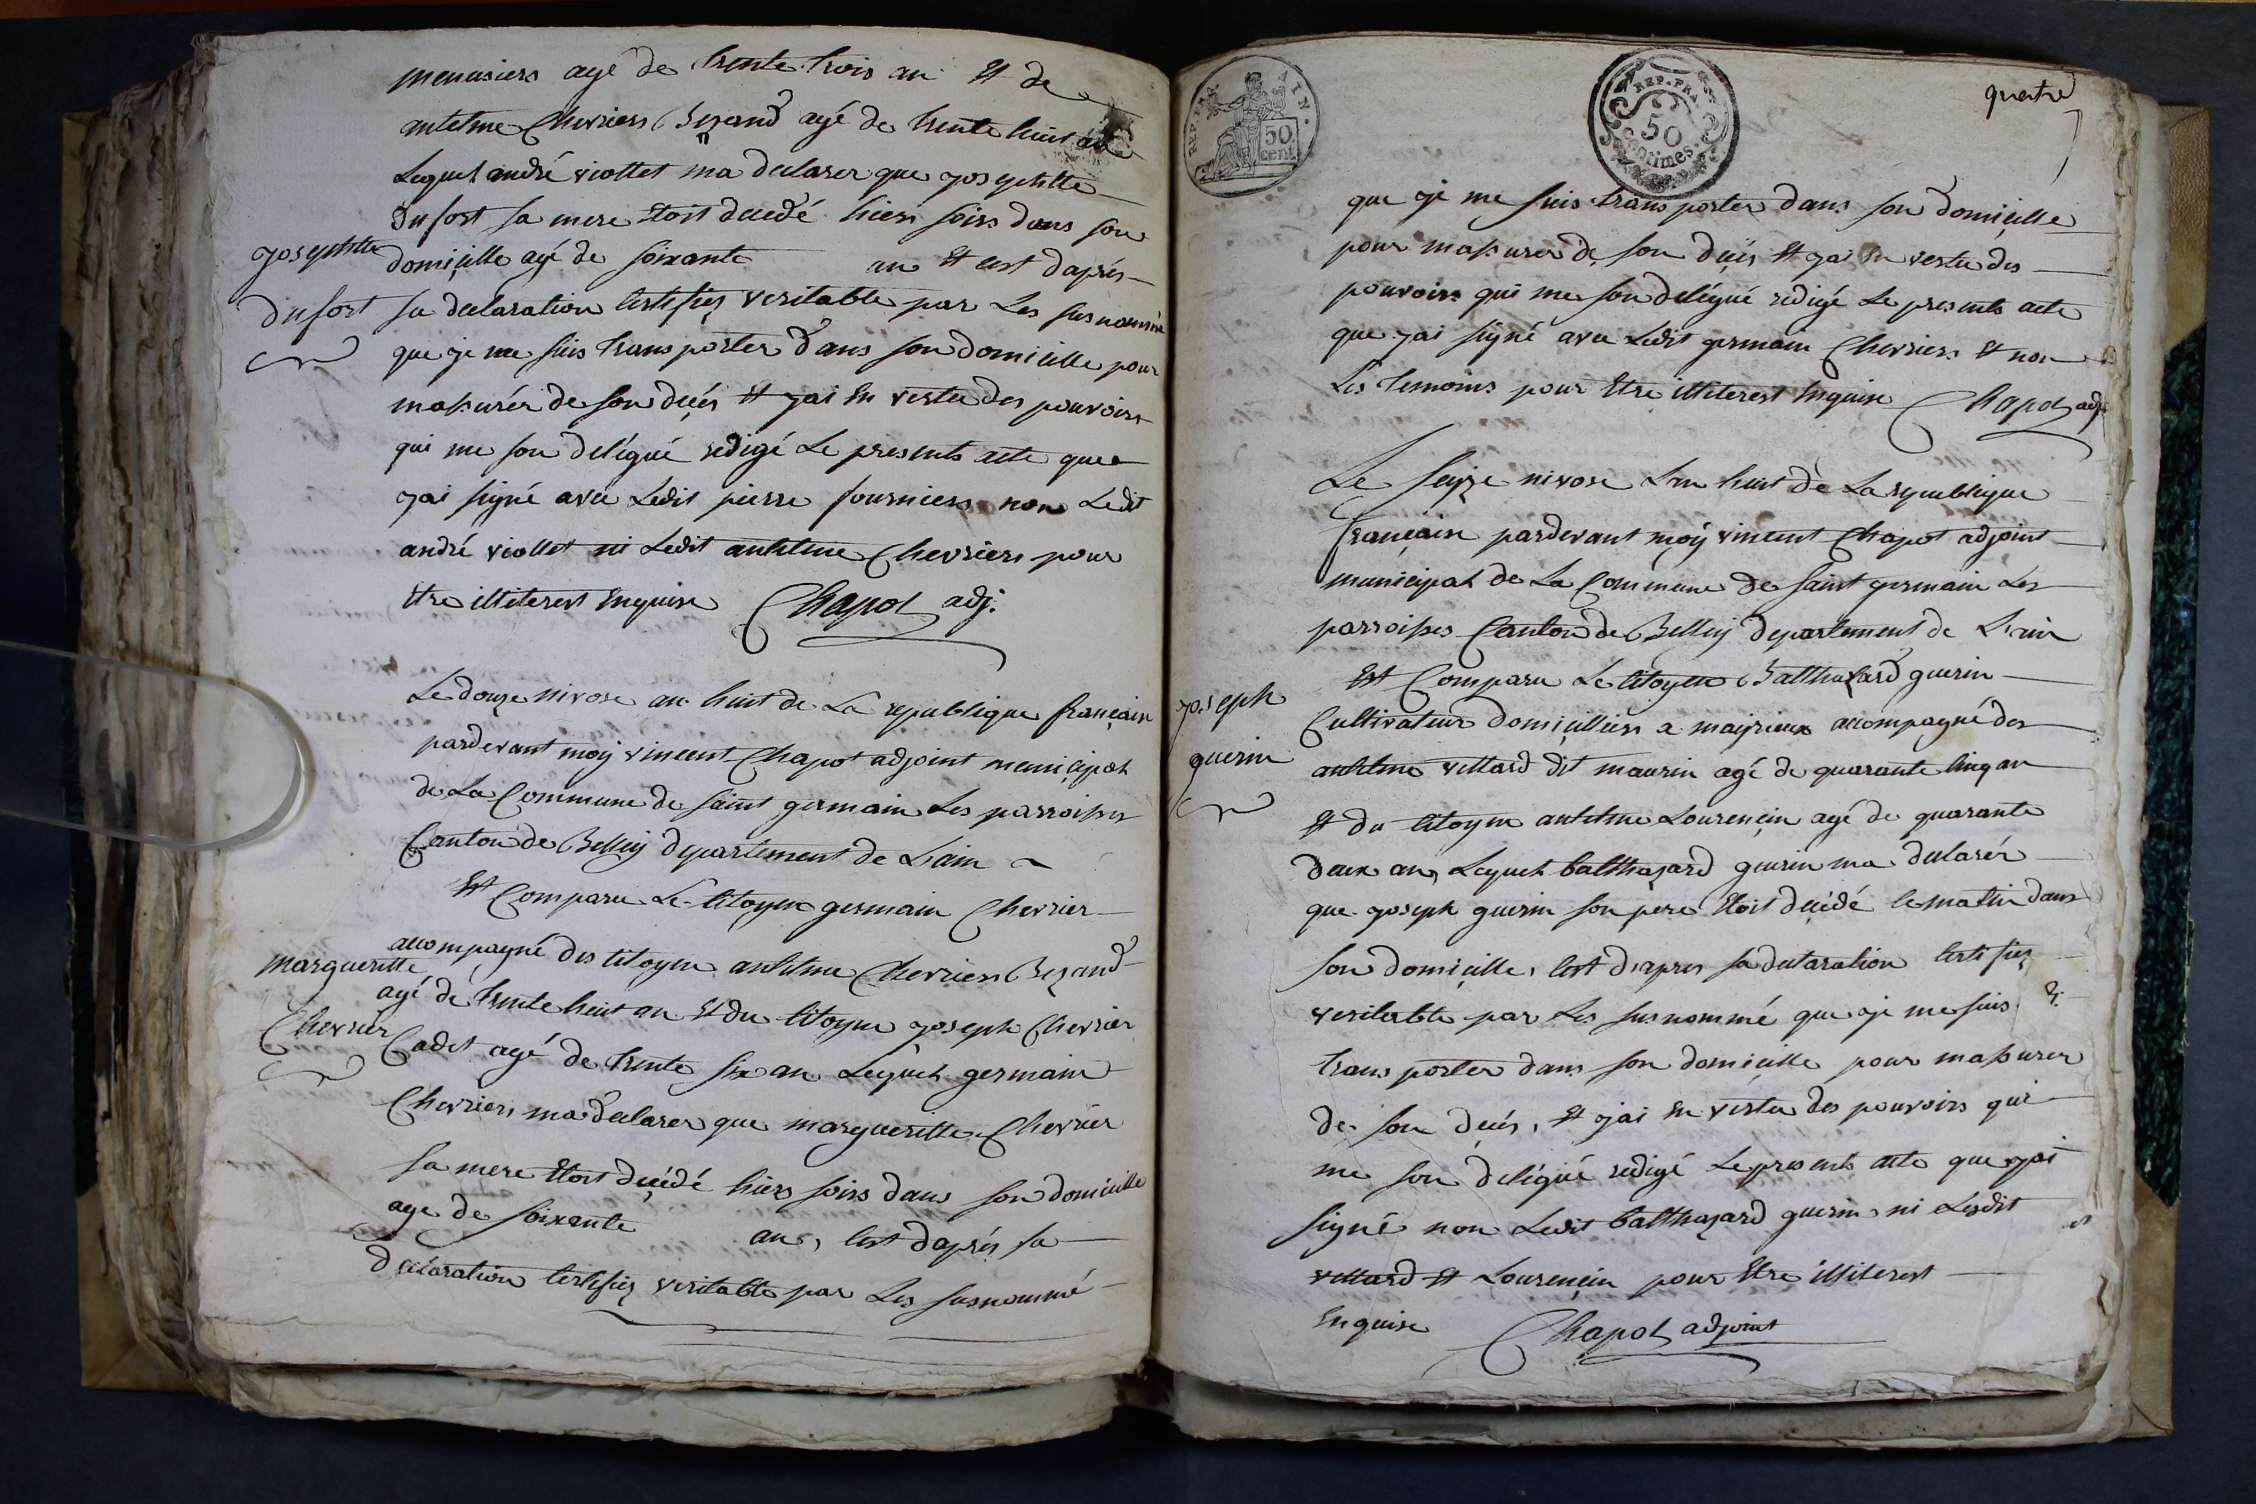 menusiers agé de trente trois an Et de
antelme Chevriers Bezand agé de trente huit an
Lequel andré viollet ma declarer que josephtte
Dufort sa mere Etoit decedé hiers soirs dans son
josephtte
dufort
domicille agé de soixante an Et cest daprés
sa declaration certifiez veritable par Les susnommé
que je me suis transporter dans son domicille pour
massurér de son decés Et jai En vertu des pouvoirs
qui me son délégué redigé Le presents acte que
jai signé avec Ledit pierre fourniers non Ledit
andré viollet ni Ledit antelme Chevriers pour
Etre illiterest Enquise Chapot adj.
Le douze nivose an huit de La republique françain
pardevant moy vincent Chapot adjoint municipal
de La Commune de saint germain Les parroisses
Canton de Belley departement de Lain
Est Comparu Le Citoyen germain Chevrier
accompagné des citoyen antelme Chevriers Bezand
margueritte
Chevrier
agé de trente huit an Et du citoyen joseph Chevrier
Cadet agé de trente six an Lequel germain
Chevriers ma declarer que margueritte Chevrier
sa mere Etoit decédé hiers soirs dans son domicille
age de soixante an, cest daprés sa
declaration certifiez veritable par Les susnommé
REP. FRA. AIN.
50 cent.
REP. FRA.
50 centimes
quatre
que je me suis transporter dans son domicille
pour massurer de son decés Et jai En vertu des
pouvoirs qui me son delégué redigé Le presents acte
que jai signé avec Ledit germain Chevriers Et non
Les temoins pour Etre illiterest Enquise Chapot adj.
Le seize nivose Lan huit de La republique
françain pardevant moy vincent Chapot adjoint
municipal de La Commune de saint germain Les
parroisses Canton de Belley departement de Lain
Est Comparu Le Citoyen Balthazard guerin
joseph
guerin
Cultivateur domicilliers a mayrieux accompagné des
antelme villard dit maurin agé de quarante cinq an
Et du citoyen antelme Lourençin agé de quarante
deux an, Lequel balthazard guerin ma declarér
que joseph guerin son pere Etoit decédé le matin dans
son domicille, cest dapres sa declaration certifiez
veritable par Les susnommé que je me suis
transporter dans son domicille pour massurer
de son decés, Et jai En vertu des pouvoirs qui
me son delégué redigé Le presents acte que jai
signé non Ledit balthazard guerin ni Lesdit
villard Et Lourençin pour Etre illiterest
Enquise Chapot adjoint